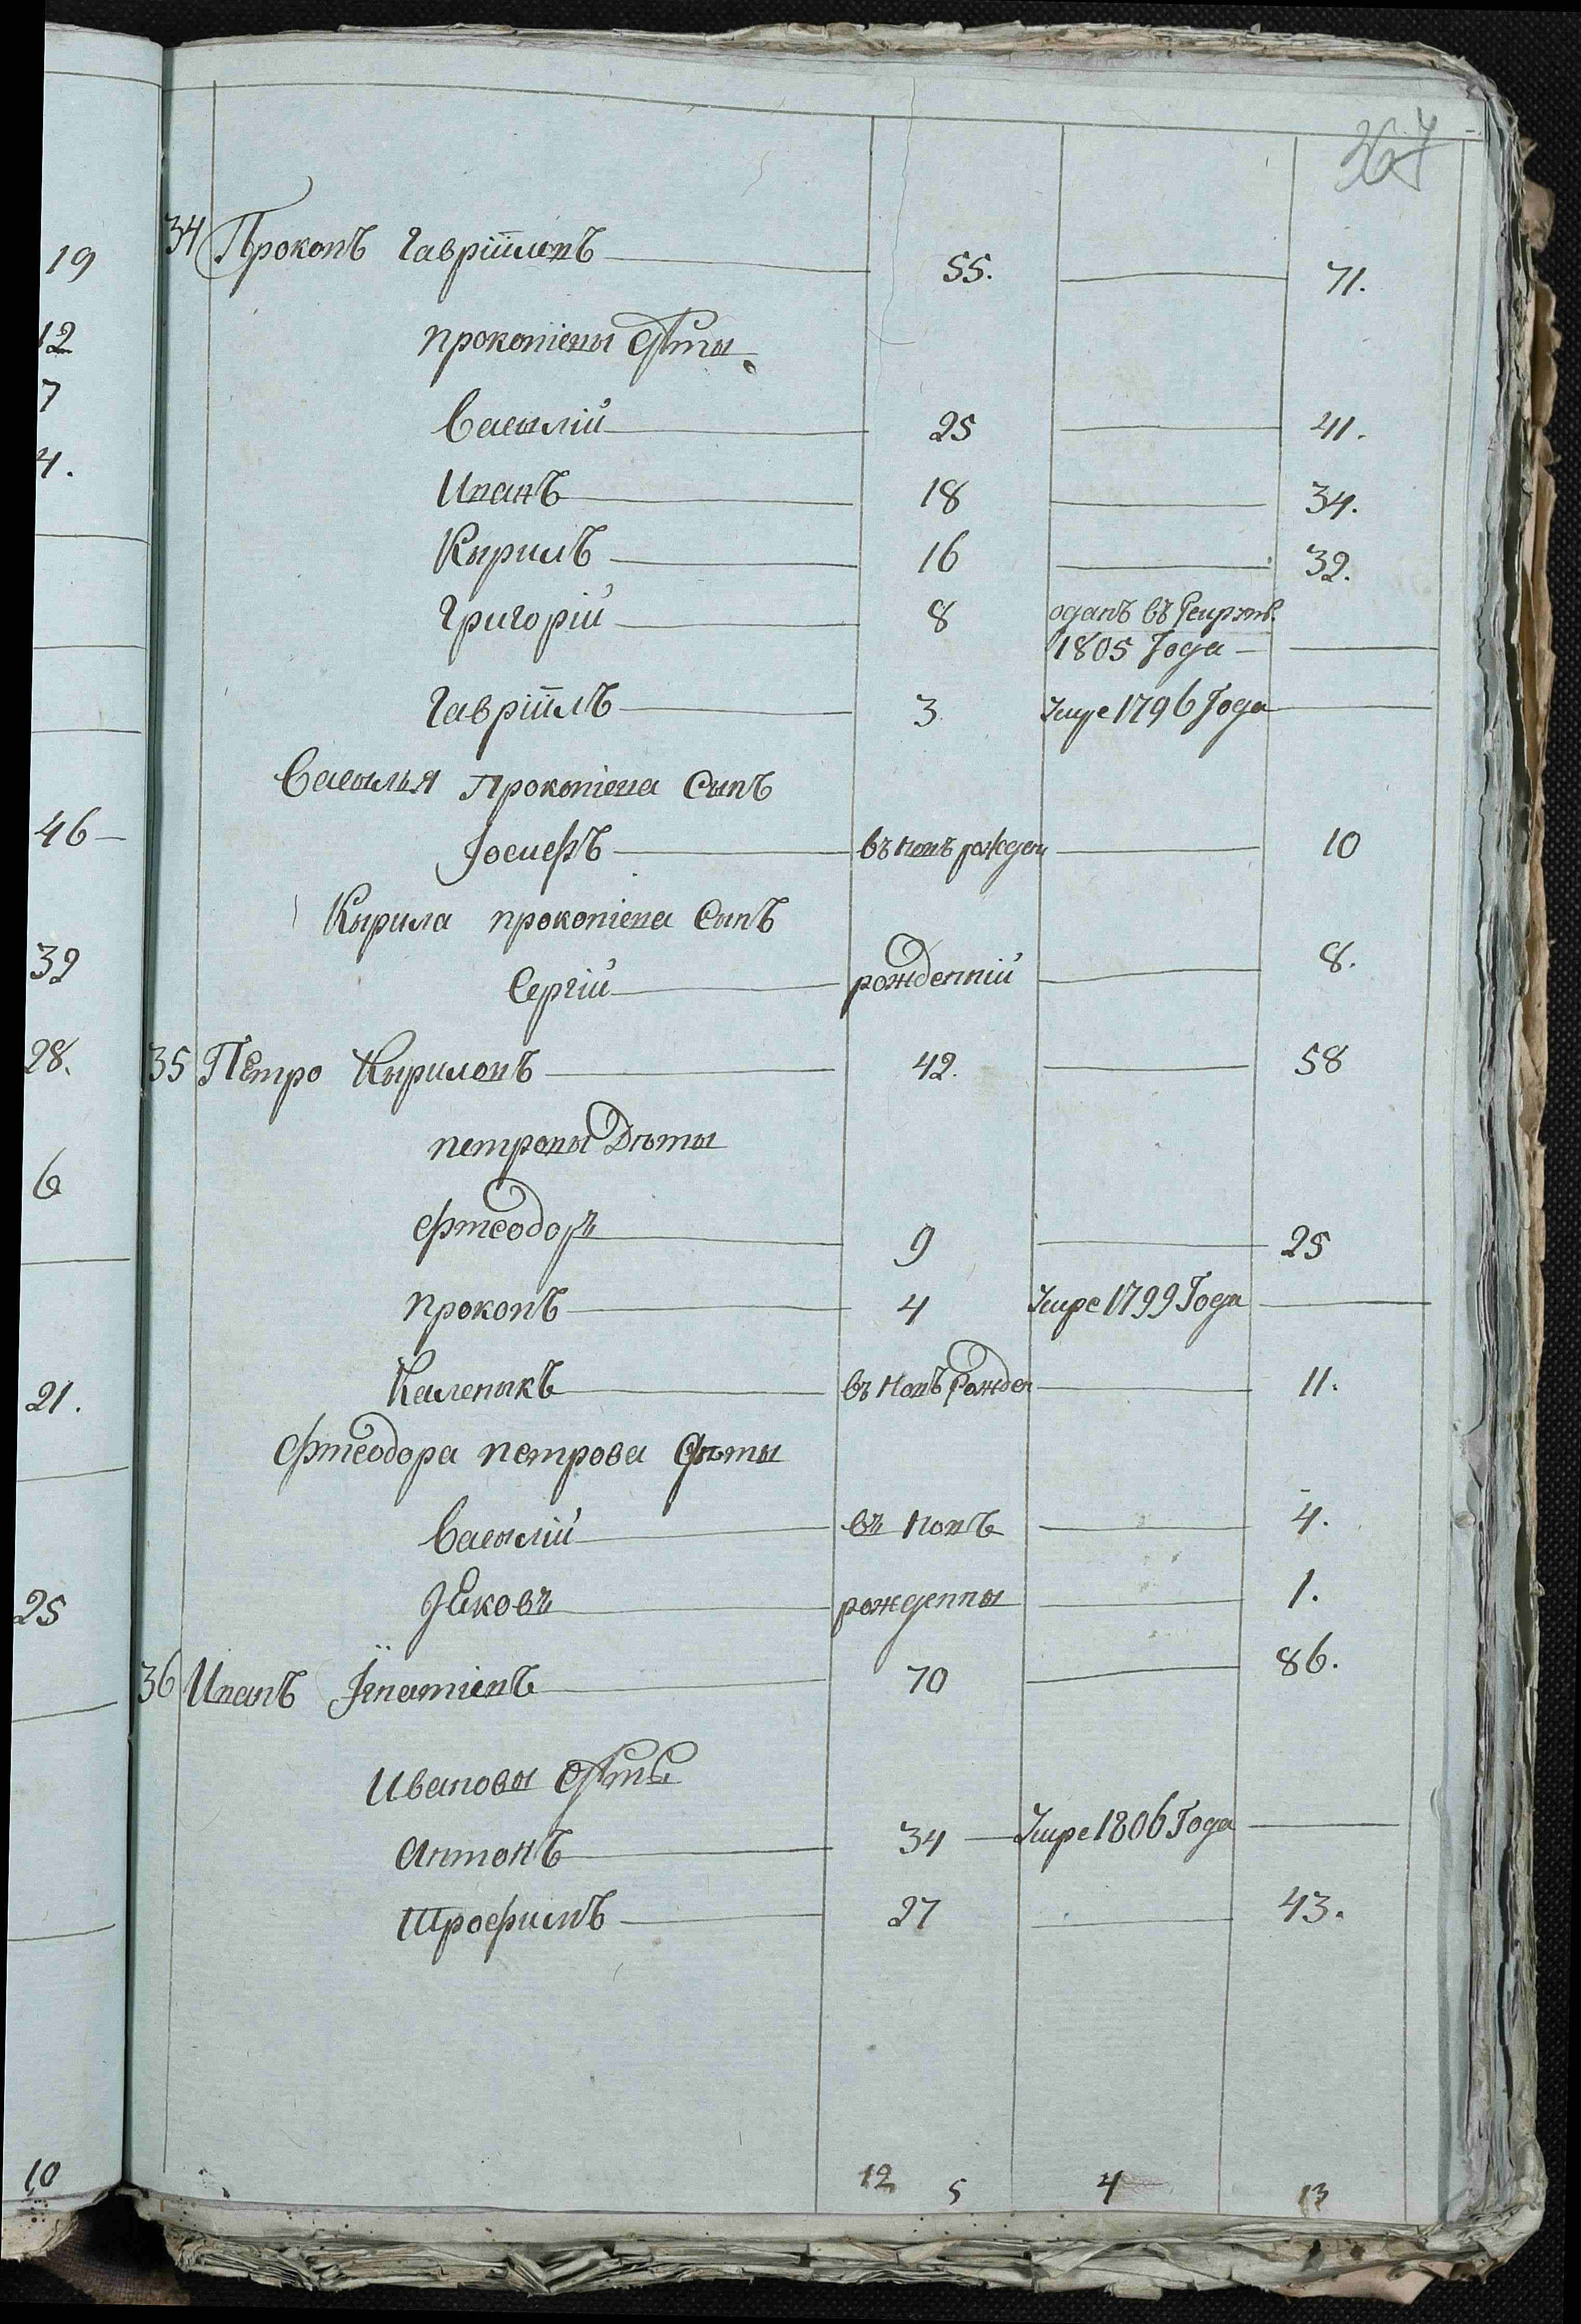 19
12
7
4.
46
32
28.
6
21.
25
10
367
34 Прокопъ Гавріиловъ 55. 71.
прокопіевы дѣти
Васылій 25 41.
Иванъ 18 34.
Кырилъ 16 32.
Григорій 8 оданъ въ Рекрут.
1805 Года
Гавріилъ 3 Умре 1796 Года
Васылья Прокопіева Сынъ
Іосифъ въ новъ рожден 10
Кырила прокопіева Сынъ
Сергій рожденній 8.
35 Петро Кыриловъ 42. 58
петровы Дѣты
Фтеодоръ 9 25
прокопъ 4 Умре 1799 Года
Каленыкъ въ Новъ Рожден 11.
Фтеодора петрова дѣты
Васылій въ Новъ 4.
Яковъ рожденны 1.
36 Иванъ Ігнатіевъ 70 86.
Ивановы дѣты
Антонъ 34 Умре 1806 Года
Трофимъ 27 43.
12 5 4 13